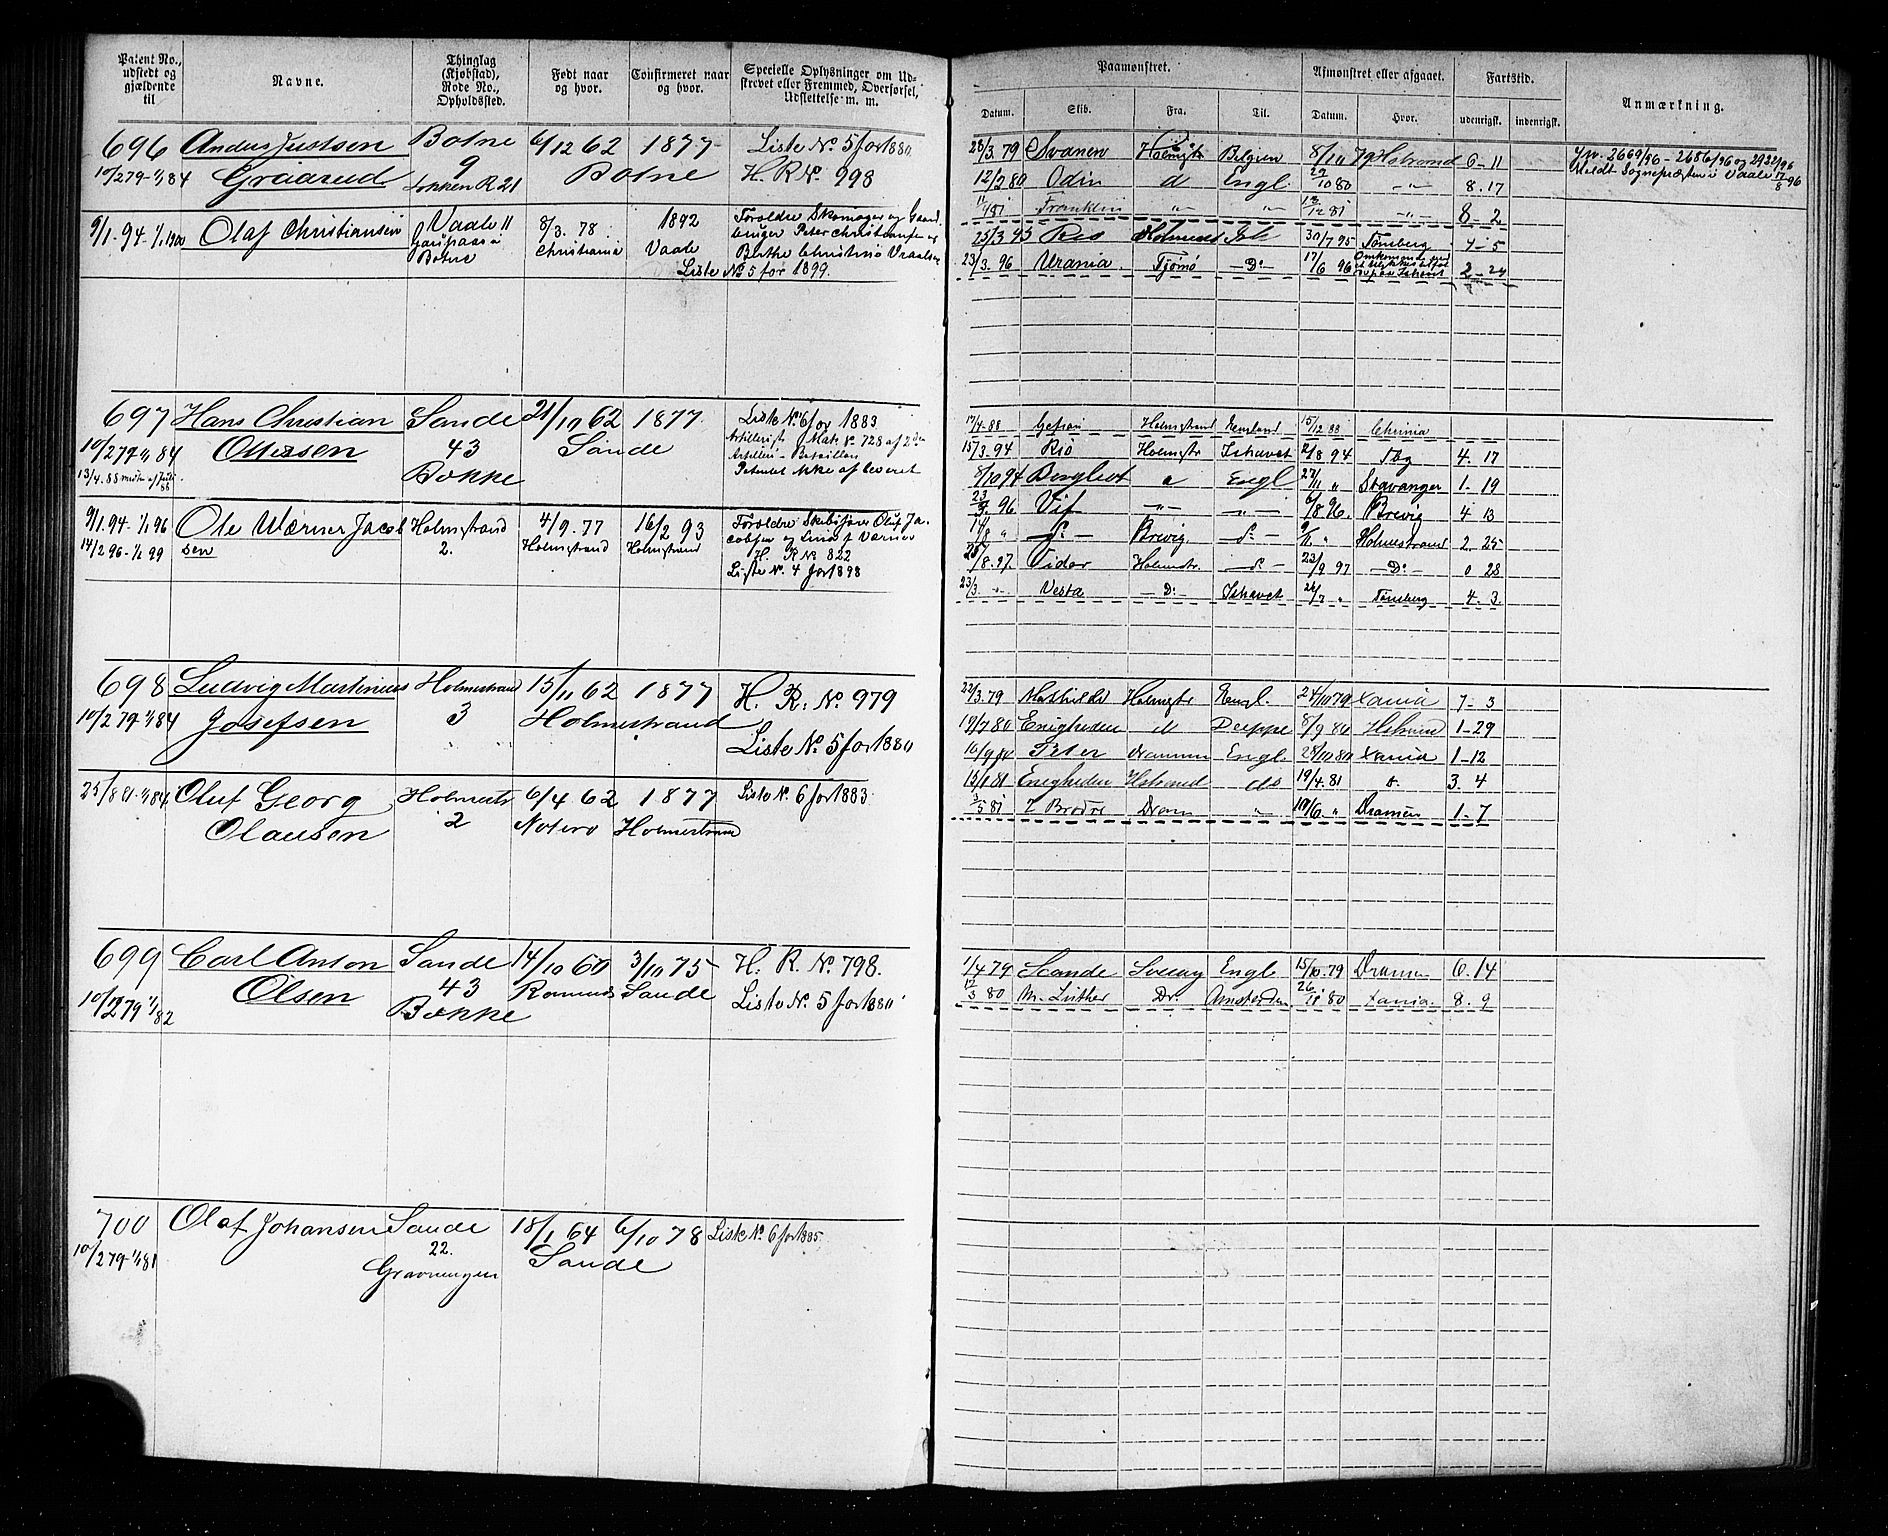 Patent No., udstedt og gjældende til
Navne.
Thinglag (Kjøbstad), Rode No., Opholdssted.
Født naar og hvor.
Confirmeret naar og hvor.
Specielle Oplysninger om Udskrevet eller Fremmed, Overførsel, Udslettelse m. m.
Paamønstret.
Afmønstret eller afgaaet.
Fartstid.
Anmærkning.
Datum. Skib. Fra. Til. Datum. Hvor. udenrigsk. indenrigsk.
696 Anders Justsen Botne 6/12 62 1877 Liste No. 5 for 1880
10/2 79 - 1/1 84 Graarud 9 Botne H. R. No. 998
R 21
9/1. 94 - 1/1 1900 Olaf Christiansen Vaale 11 8/3. 78 1892 Forældre Skomager og Gaard
Botne Christiania Vaale bruger Peter Christiansen og
Liste No 5 for 1899.
28/3. 79 Svanen Holmstr Belgien 8/10 79 Holstrand 6 - 11
12/3 80 Odin d Engl. 29/10 80 -"- 8. 17
Franklin -"- -"- 13/12 81 -"- 8 - 2
25/3 95 Rio 30/7 95 Tønsberg 4 - 5
23/3. 96 Urania Tjømø -Do- 17/6 96 2 - 24
2669/96 - 2686/96 og 2922/96
Meldt Sognepræsten i Vaale 17/8 96
697 Hans Christian Sande 21/10 62 1877. Liste No. 6 for 1883
10/2 79 1/1 84 Ottersen 43 Sande Artillerist Matr. No. 728 af 2den
Bokke Artilleri-Bataillon
Patentet ikke afleveret
9/1. 94 - 1/1 96 Ole Werner Jacob Holmestrand 4/9. 77 16/2 93 Forældre Skibsfører Oluf Ja-
14/2 96 - 1/1 99 sen 2. Holmestrand Holmestrand cobsen og
H. R No 822
Liste No. 4 for 1898
17/4 88 Gefion Holmestrand England 15/12 88 Chrinia
15/3. 94 Rio Holmestr Ishavet 21/8 94 Tbg 4. 17
8/10 94 Borghevt d Engl 27/11 " Stavanger 1. 19
23/3. 96 Vif -"- -"- 6/8 96. Brevig 4 13
14/8 " Do - Brevig. -Do- 9/11 " Holmestrand 2. 25
25/8. 97. Vidar Holmestr. -Do- 23/9 97 -Do- 0 28
23/3. -"- Vesta -Do- Ishavet 26/7 " Tønsberg 4. 3.
698 Ludvig Martinius Holmestrand 15/11 62 1877 H. R. No 979
10/2 79 1/1 84 Josefsen 3 Holmestrand
Liste No. 5 for 1880
25/8 81 - 1/1 84 Oluf Georg Holmestr 6/4 62 1877 Liste No. 6 for 1883.
Olausen 2 Notero Holmestrand
22/3. 79 Mathilde Holmestr Engl. 24/10 79 Xania 7 - 3
19/7 80 Enigheden d Dieppe 8/9 80 1 - 29
16/9 80 Peter Drammen Engl. 28/10 80 Xania 1 - 12
15/1 81 Enigheden Hstrand do 19/4. 81 3. 4
3/5 81 2 Brødre Dram -"- 10/6. " Dramen 1 - 7
699 Carl Anton Sande 14/10 60 3/10 75 H. R. No. 798.
10/2 79 1/1 82 Olsen 43 Sande Liste No. 5 for 1880
Bokke
1/4 79 Scande Engl 15/10. 79 Dramen 6. 14
12/3 80 M. Luther Dr. Amsterdam 26/11 80 Xania. 8. 9
700 Olaf Johansen Sande 18/1 64 6/10 78 Liste No. 6 for 1885
10/2 79 - 1/1 81 22. Sande
Gravningen